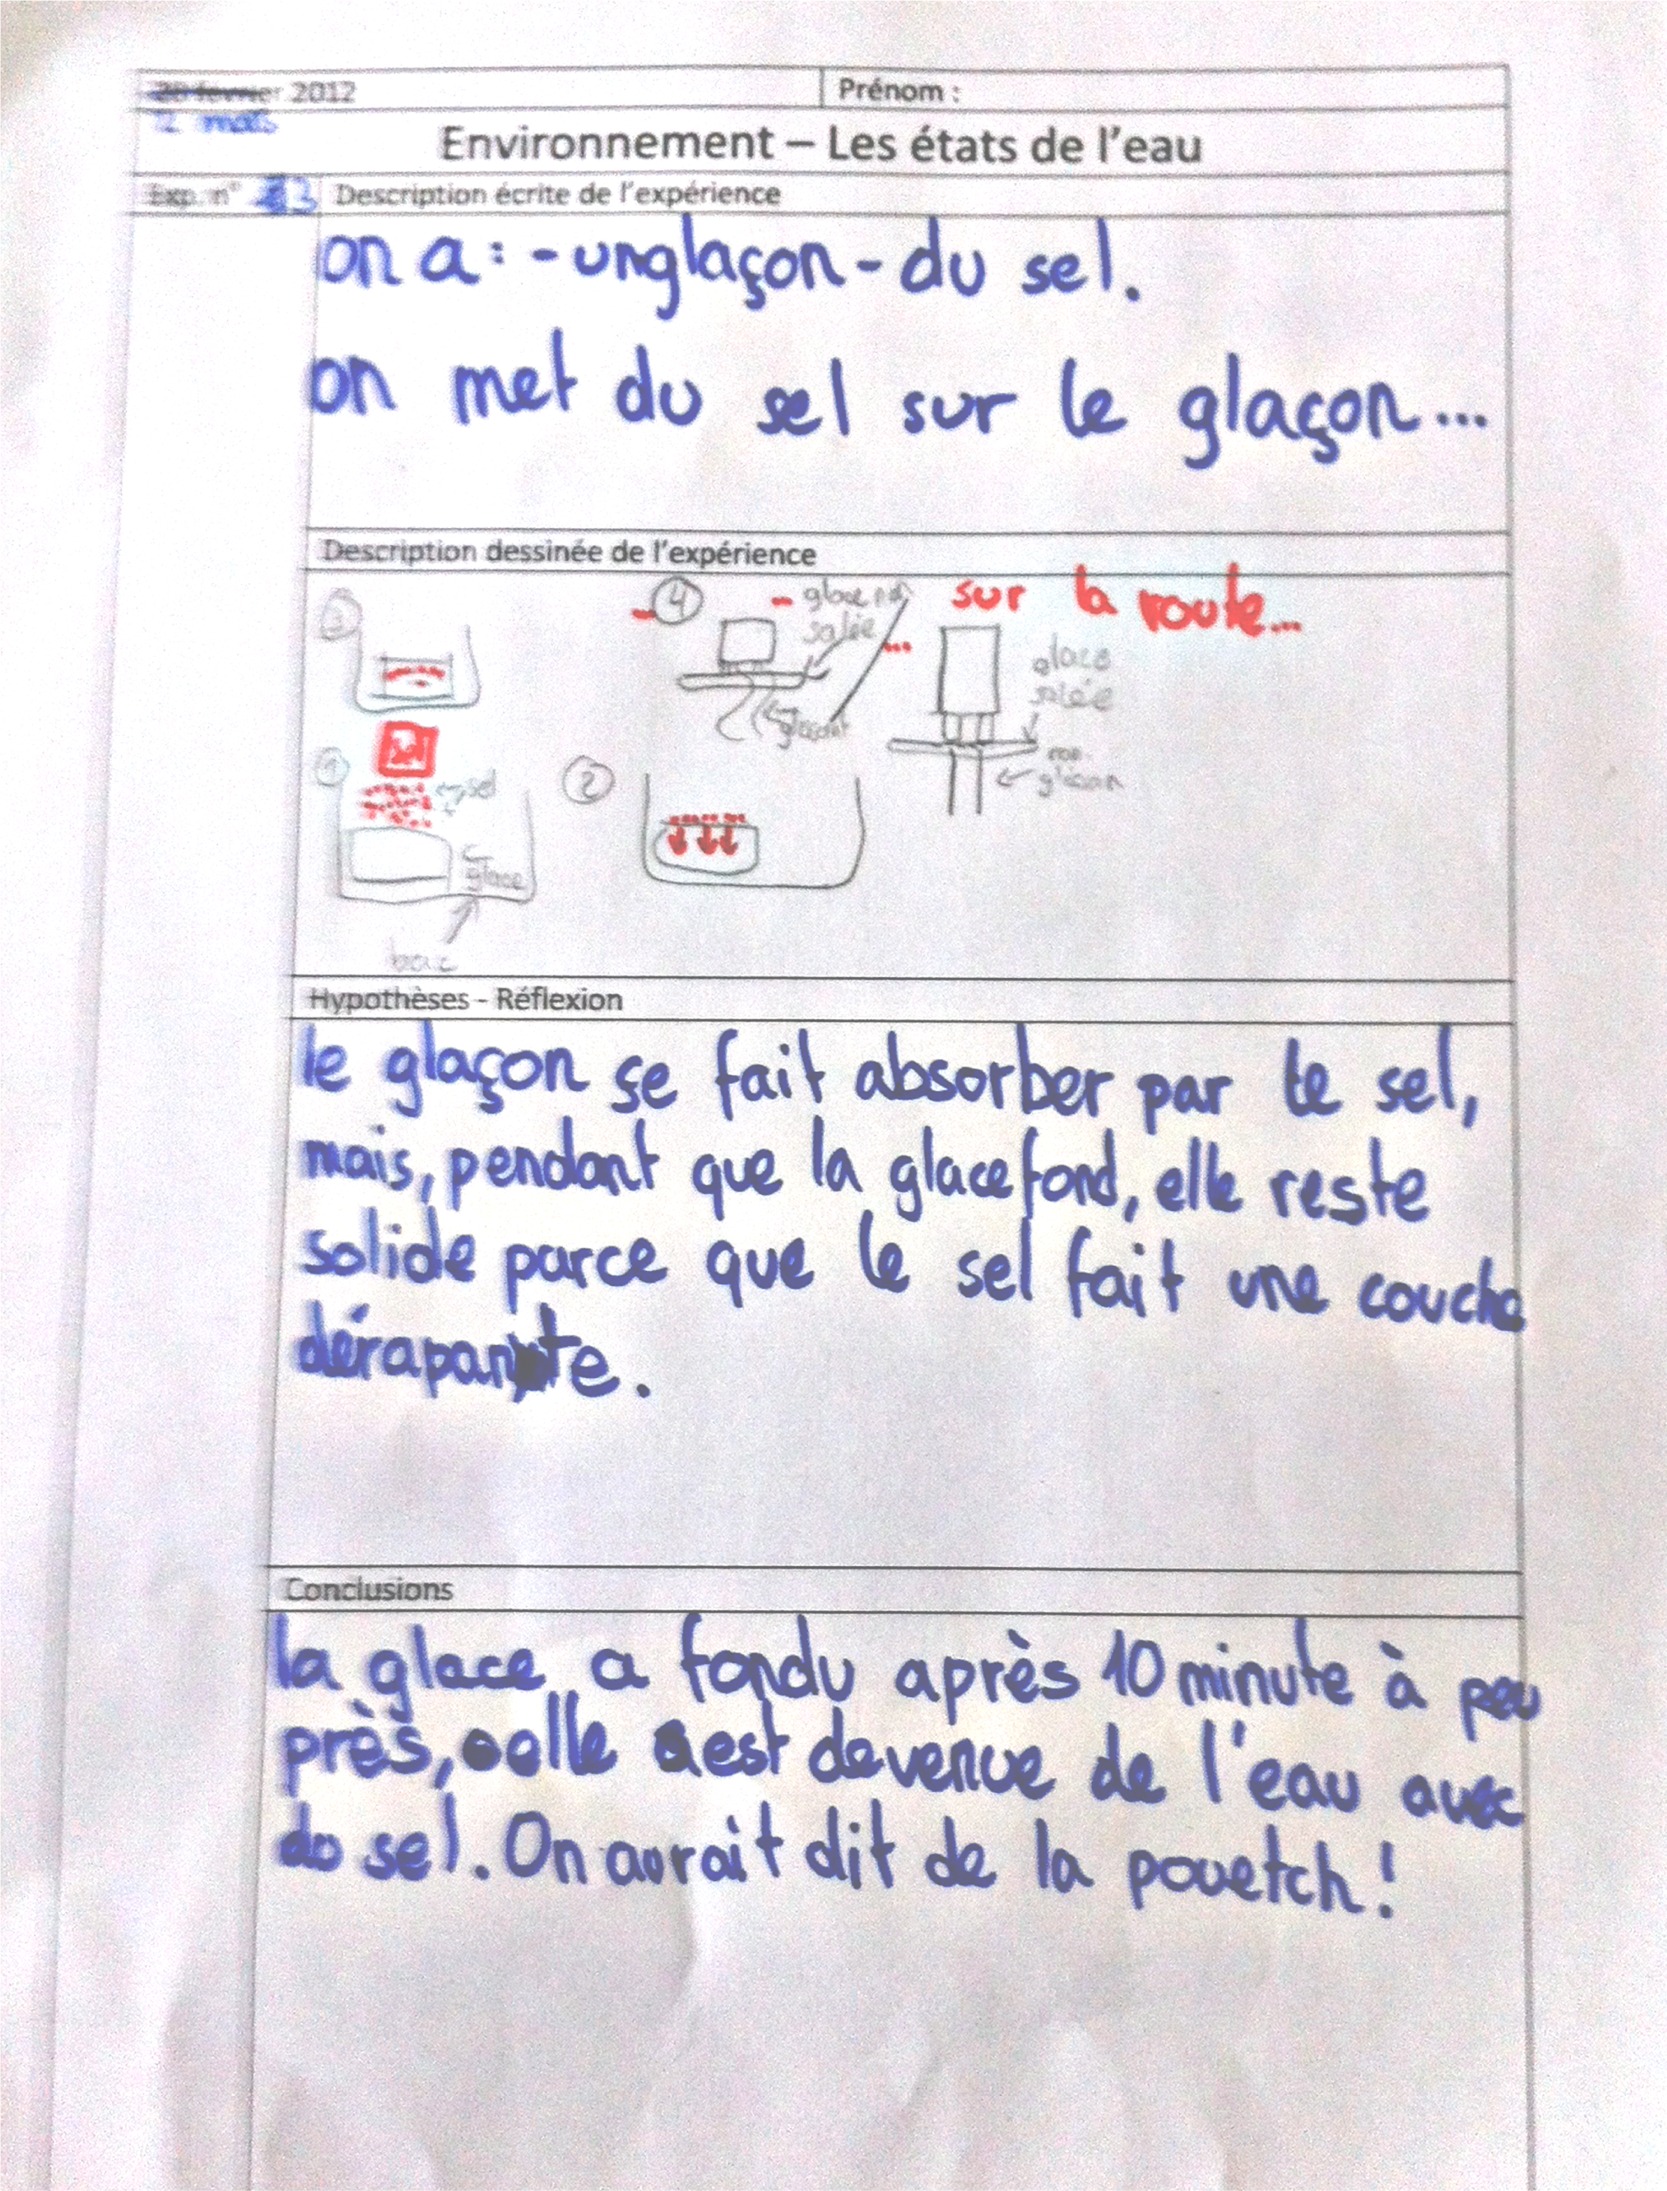 28 février 2012
Prénom :
2 mars
Environnement – Les états de l'eau
Exp. n° 3
Description écrite de l'expérience
on a : - un glaçon - du sel.
on met du sel sur le glaçon...
Description dessinée de l'expérience
sur la route...
3
4
glace non
salée
glissant
glace
salée
non
glissan
sel
1
sel
glace
bac
2
Hypothèses - Réflexion
le glaçon se fait absorber par le sel,
mais, pendant que la glace fond, elle reste
solide parce que le sel fait une couche
dérapante.
Conclusions
la glace a fondu après 10 minute à peu
près, elle est devenue de l'eau avec
do sel. On aurait dit de la pouetch !